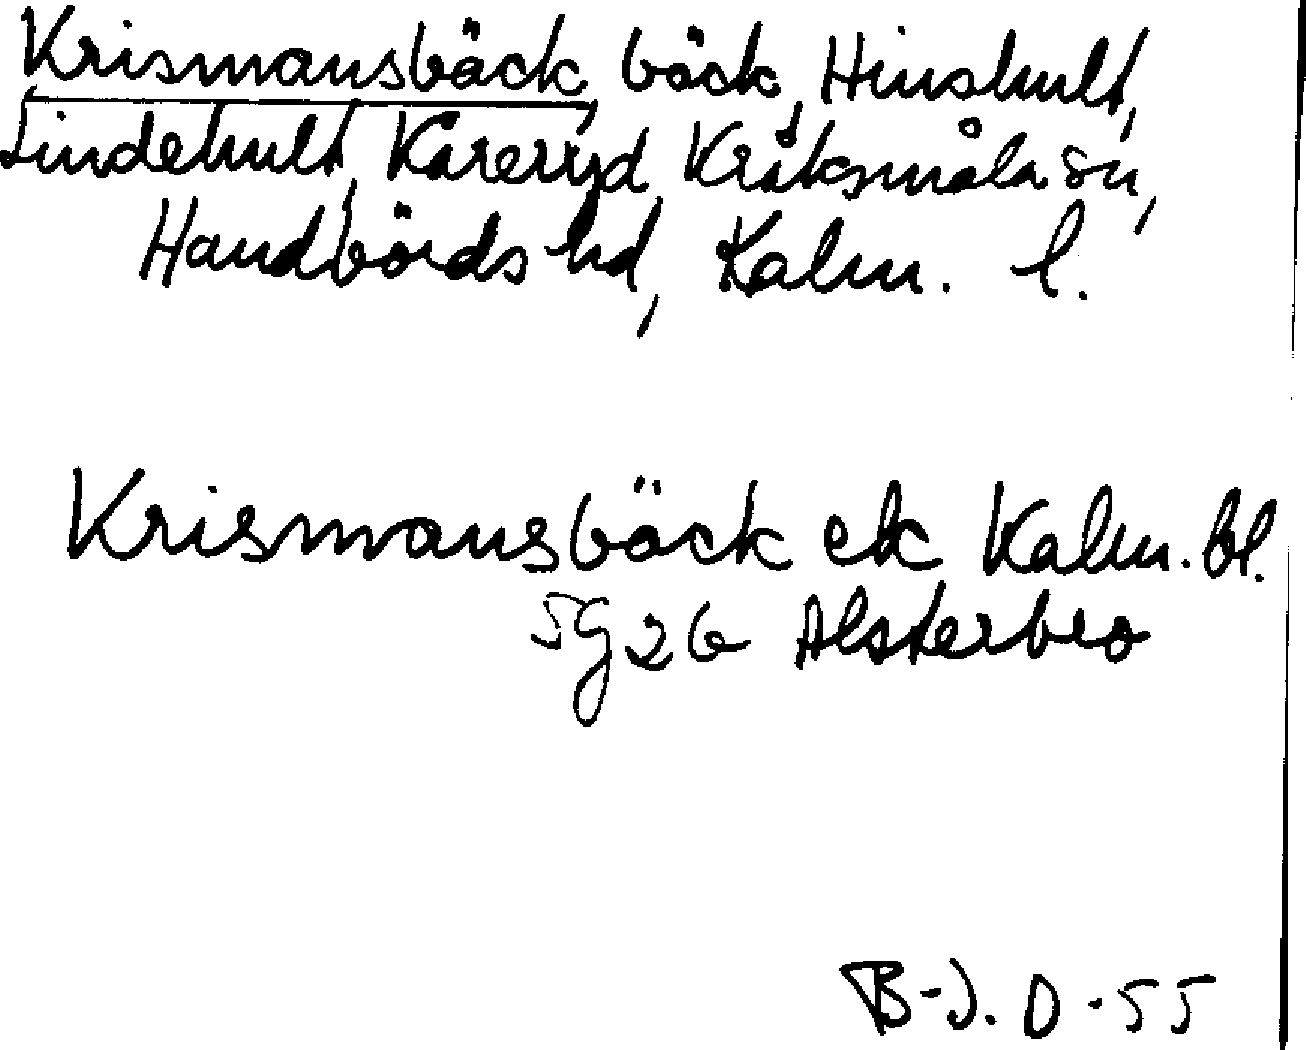 Krismansbäck, bäck, Hinshult,
Lindehult, Kareryd, Kråksmåla sn,
Handbörds hd, Kalm. l.
Krismansbäck ek Kalm. bl.
5g26 Alsterbro
B-J. O-55